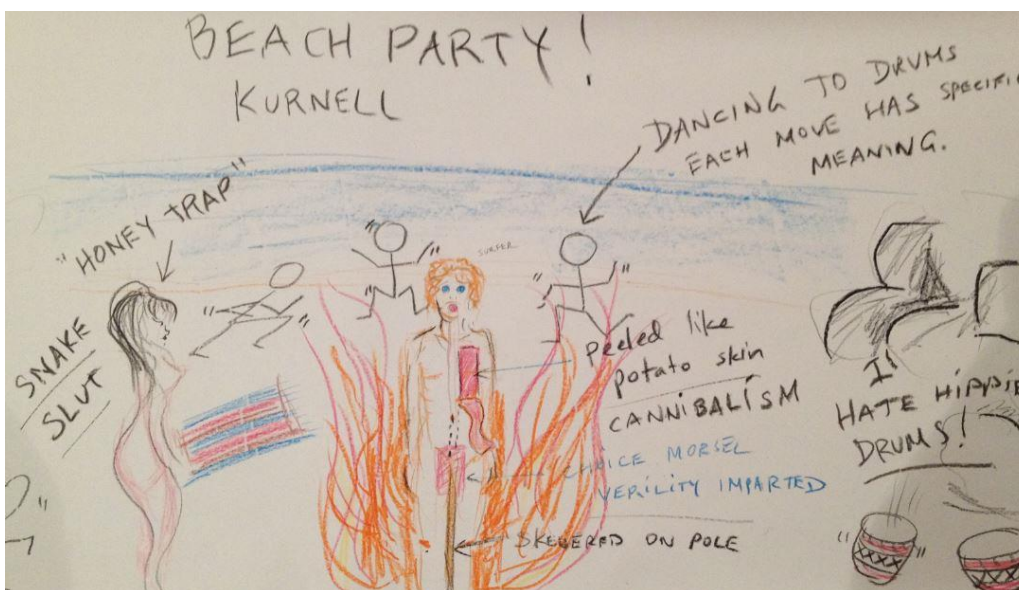 BEACH PARTY!
KURNELL
DANCING TO DRUMS
EACH MOVE HAS SPECIFIC
MEANING.
"HONEY TRAP"
SURFER
SNAKE
SLUT
Peeled like
potato skin
CANNIBALISM
CHOICE MORSEL
VERILITY IMPARTED
SKEBERED ON POLE
I
HATE HIPPIE
DRUMS!